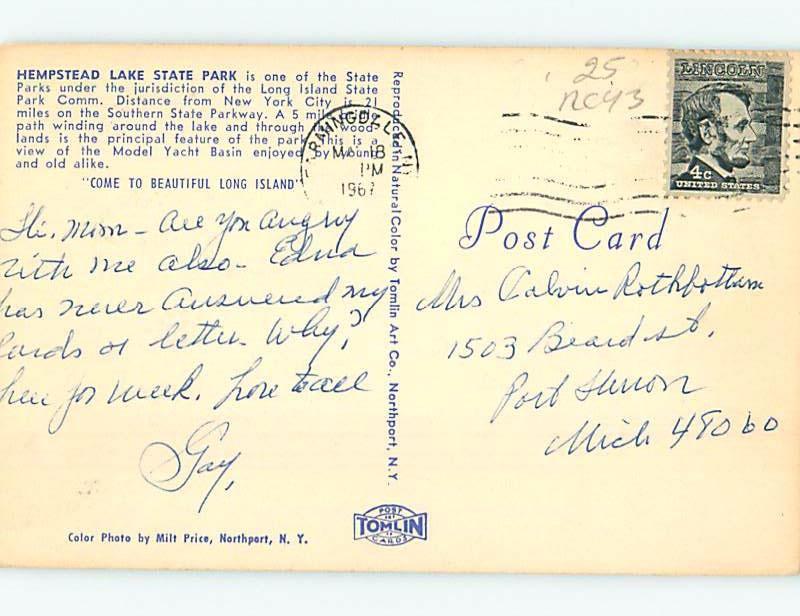 HEMPSTEAD LAKE STATE PARK is one of the State
Parks under the jurisdiction of the Long Island State
Park Comm. Distance from New York City is 21
miles on the Southern State Parkway. A 5 mile
path winding around the lake and through wood-
lands is the principal feature of the park. This is a
view of the Model Yacht Basin enjoyed by young
and old alike.
"COME TO BEAUTIFUL LONG ISLAND"
Hi. Mom - are you angry
with me also - Edna
has never answered my
cards or letter. Why?
here for week. Love to all
Gay,
Color Photo by Milt Price, Northport, N. Y.
Reproduced in Natural Color by Tomlin Art Co., Northport, N. Y.
POST
TOMLIN
CARDS
FARMINGDALE, N.Y.
MAY 18
PM
1967
25
nc43
LINCOLN
4c
UNITED STATES
Post Card
Mrs Calvin Rothbottam
1503 Beard st.
Port Huron
Mich 48060